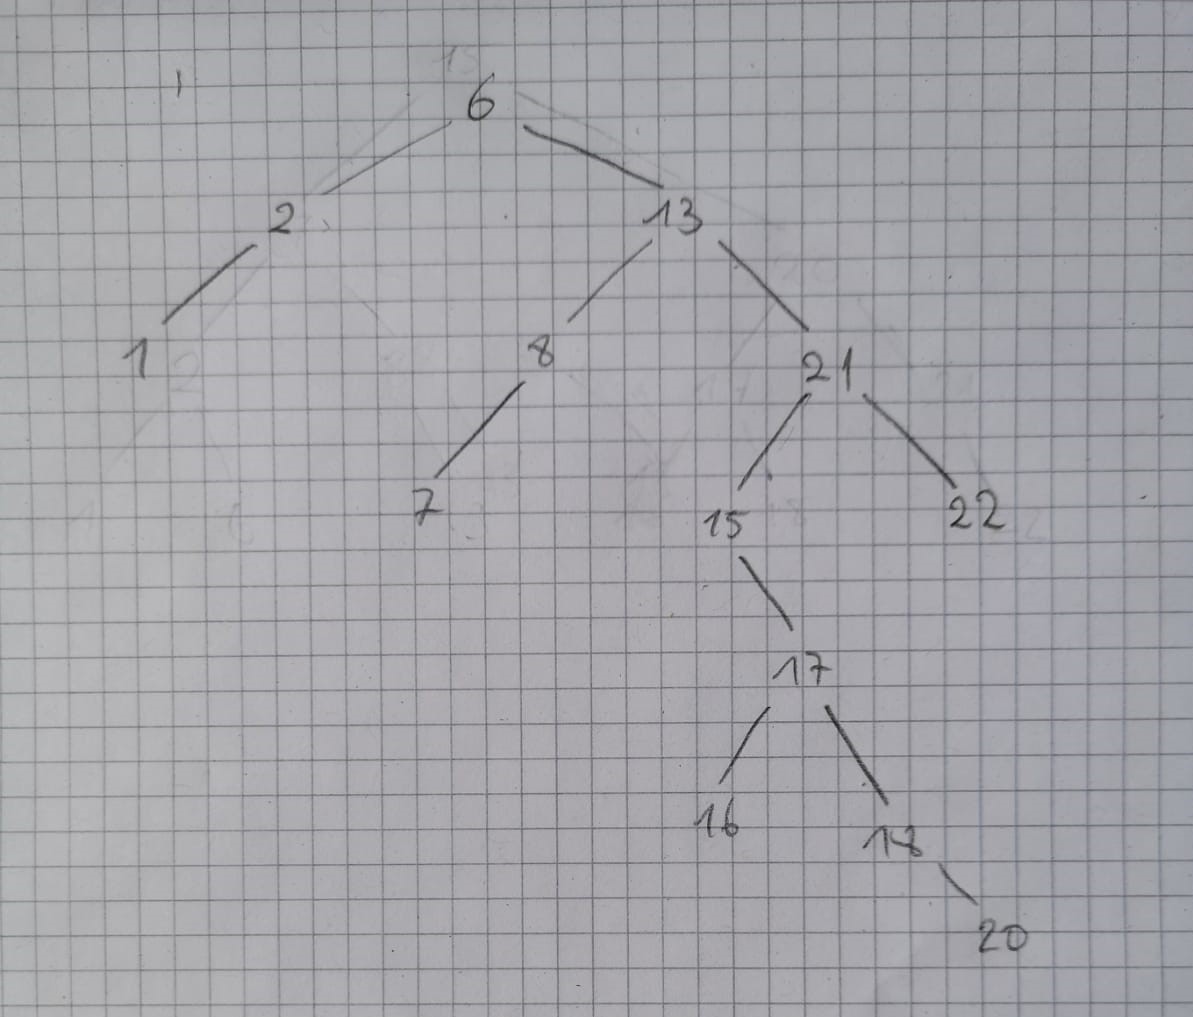 6
2 13
1 8 21
7 15 22
17
16 18
20